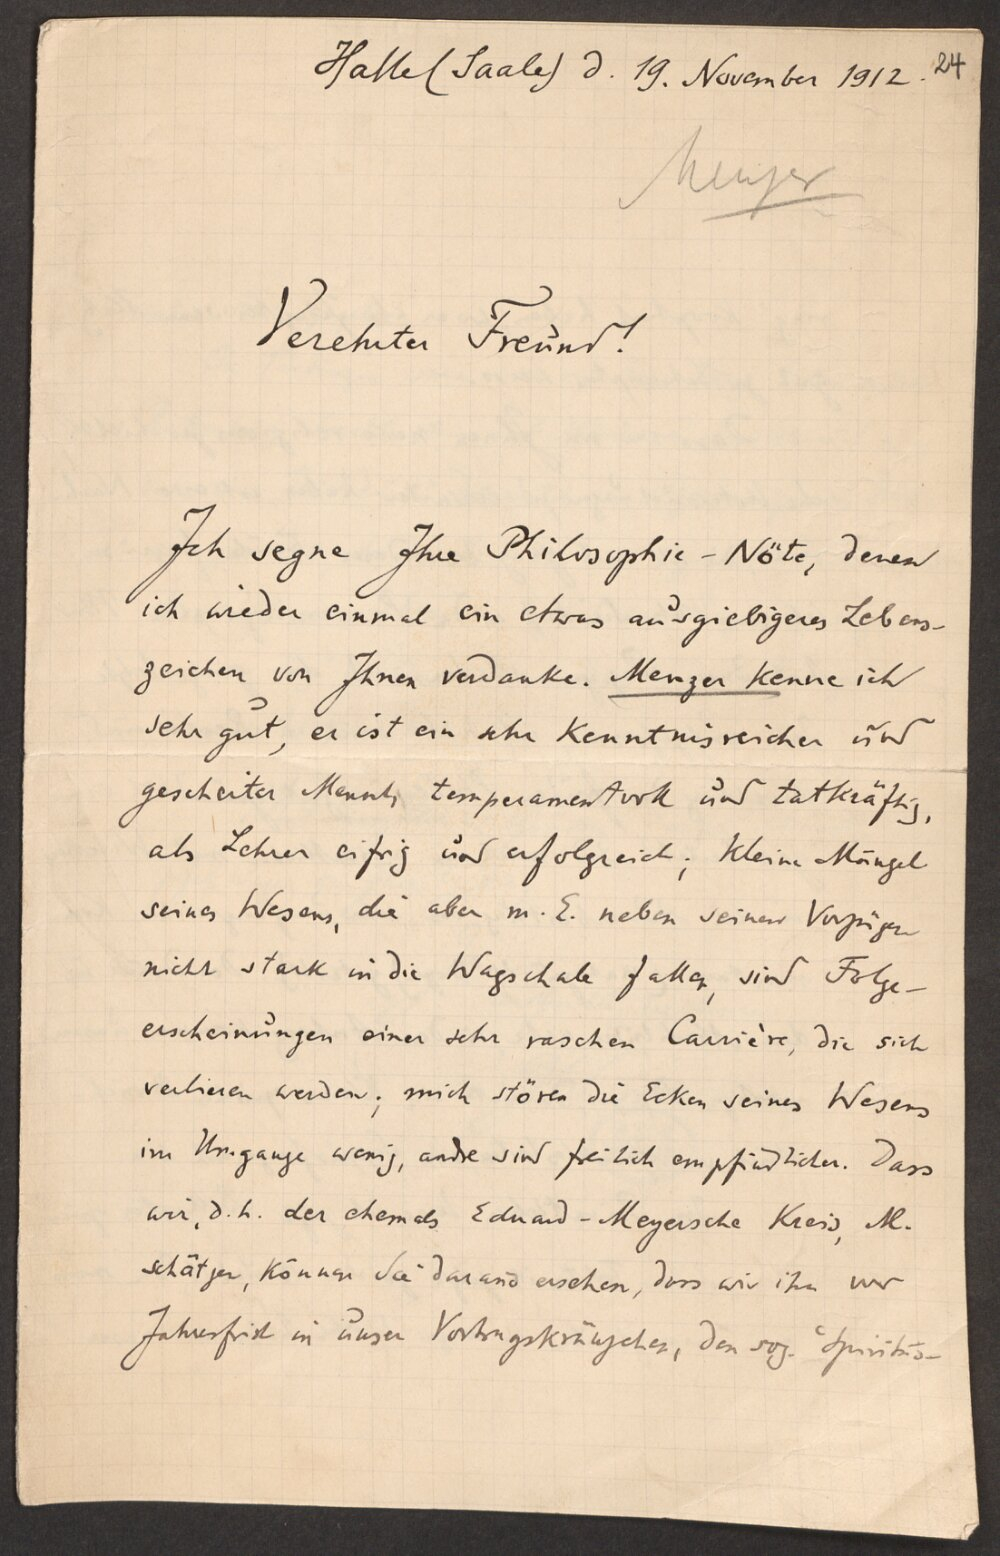 Halle (Saale) d. 19. November 1912.
24
Menzer
Verehrter Freund!
Ich segne Ihre Philosophie-Nöte, denen
ich wieder einmal ein etwas ausgiebigeres Lebens-
zeichen von Ihnen verdanke. Menzer kenne ich
sehr gut, er ist ein sehr kenntnisreicher und
gescheiter Mensch, temperamentvoll und tatkräftig,
als Lehrer eifrig und erfolgreich; kleine Mängel
seines Wesens, die aber m. E. neben seinen Vorzügen
nicht stark in die Wagschale fallen, sind Folge-
erscheinungen einer sehr raschen Carrière, die sich
verlieren werden; mich stören die Ecken seines Wesens
im Umgange wenig, andre sind freilich empfindlicher. Dass
wir, d. h. der ehemals Eduard-Meyersche Kreis, M.
schätzen, können Sie daraus ersehen, dass wir ihn vor
Jahresfrist in unser Vortragskränzchen, den sog. "Spiritus-